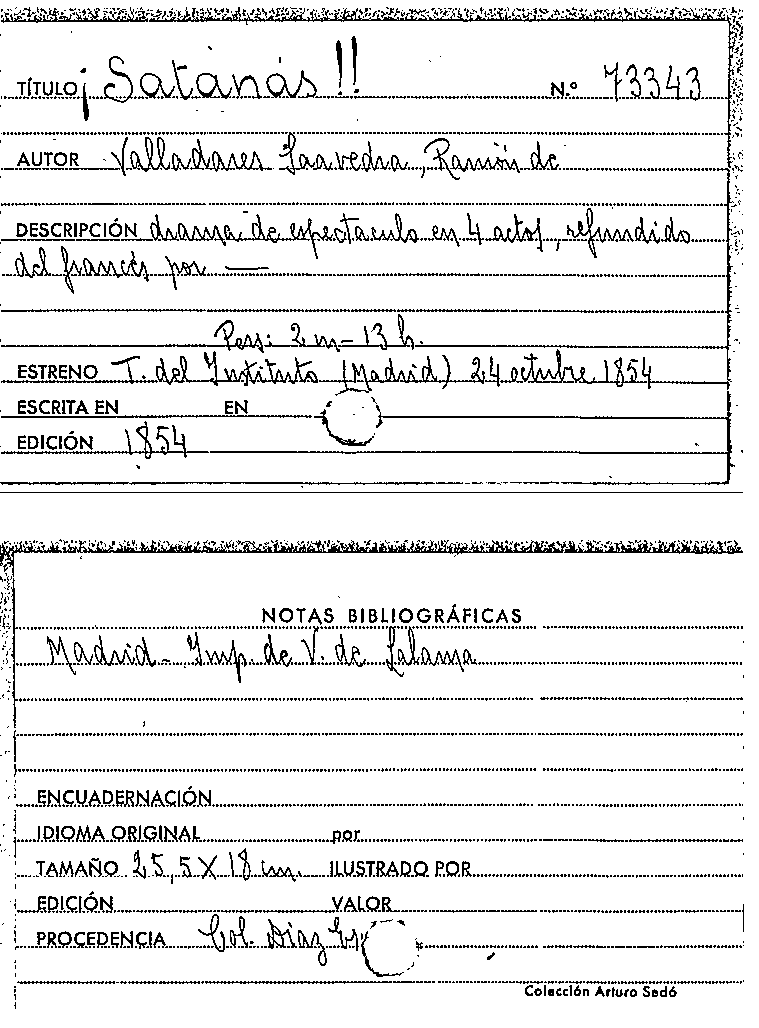 TÍTULO ¡Satanás!! N.º 73343
AUTOR Valladares Saavedra, Ramón de
DESCRIPCIÓN drama de espectaculo en 4 actos, refundido
del francés por —
Pers: 2 m - 13 h.
ESTRENO T. del Instituto (Madrid) 24 octubre 1854
ESCRITA EN EN
EDICIÓN 1854
NOTAS BIBLIOGRÁFICAS
Madrid - Imp. de V. de Lalama
ENCUADERNACIÓN
IDIOMA ORIGINAL por
TAMAÑO 25,5 X 18 cm. ILUSTRADO POR
EDICIÓN VALOR
PROCEDENCIA Col. Díaz
Colección Arturo Sedó